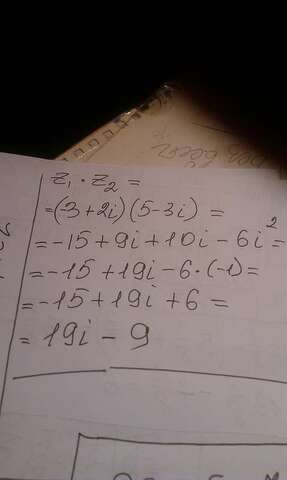 z₁ · z₂ =
=(3+2i)(5-3i) =
=-15+9i+10i-6i²=
=-15+19i-6·(-1)=
=-15+19i+6=
= 19i-9